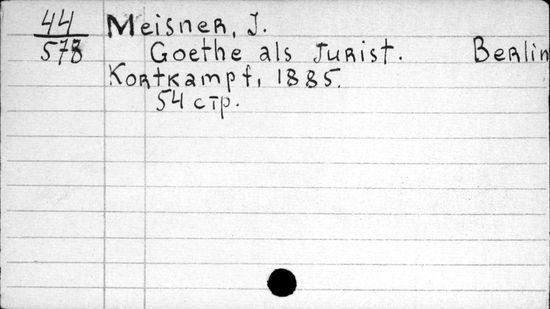 44 Meisner, J.
578 Goethe als Jurist. Berlin
Kortkampf, 1885.
54 стр.